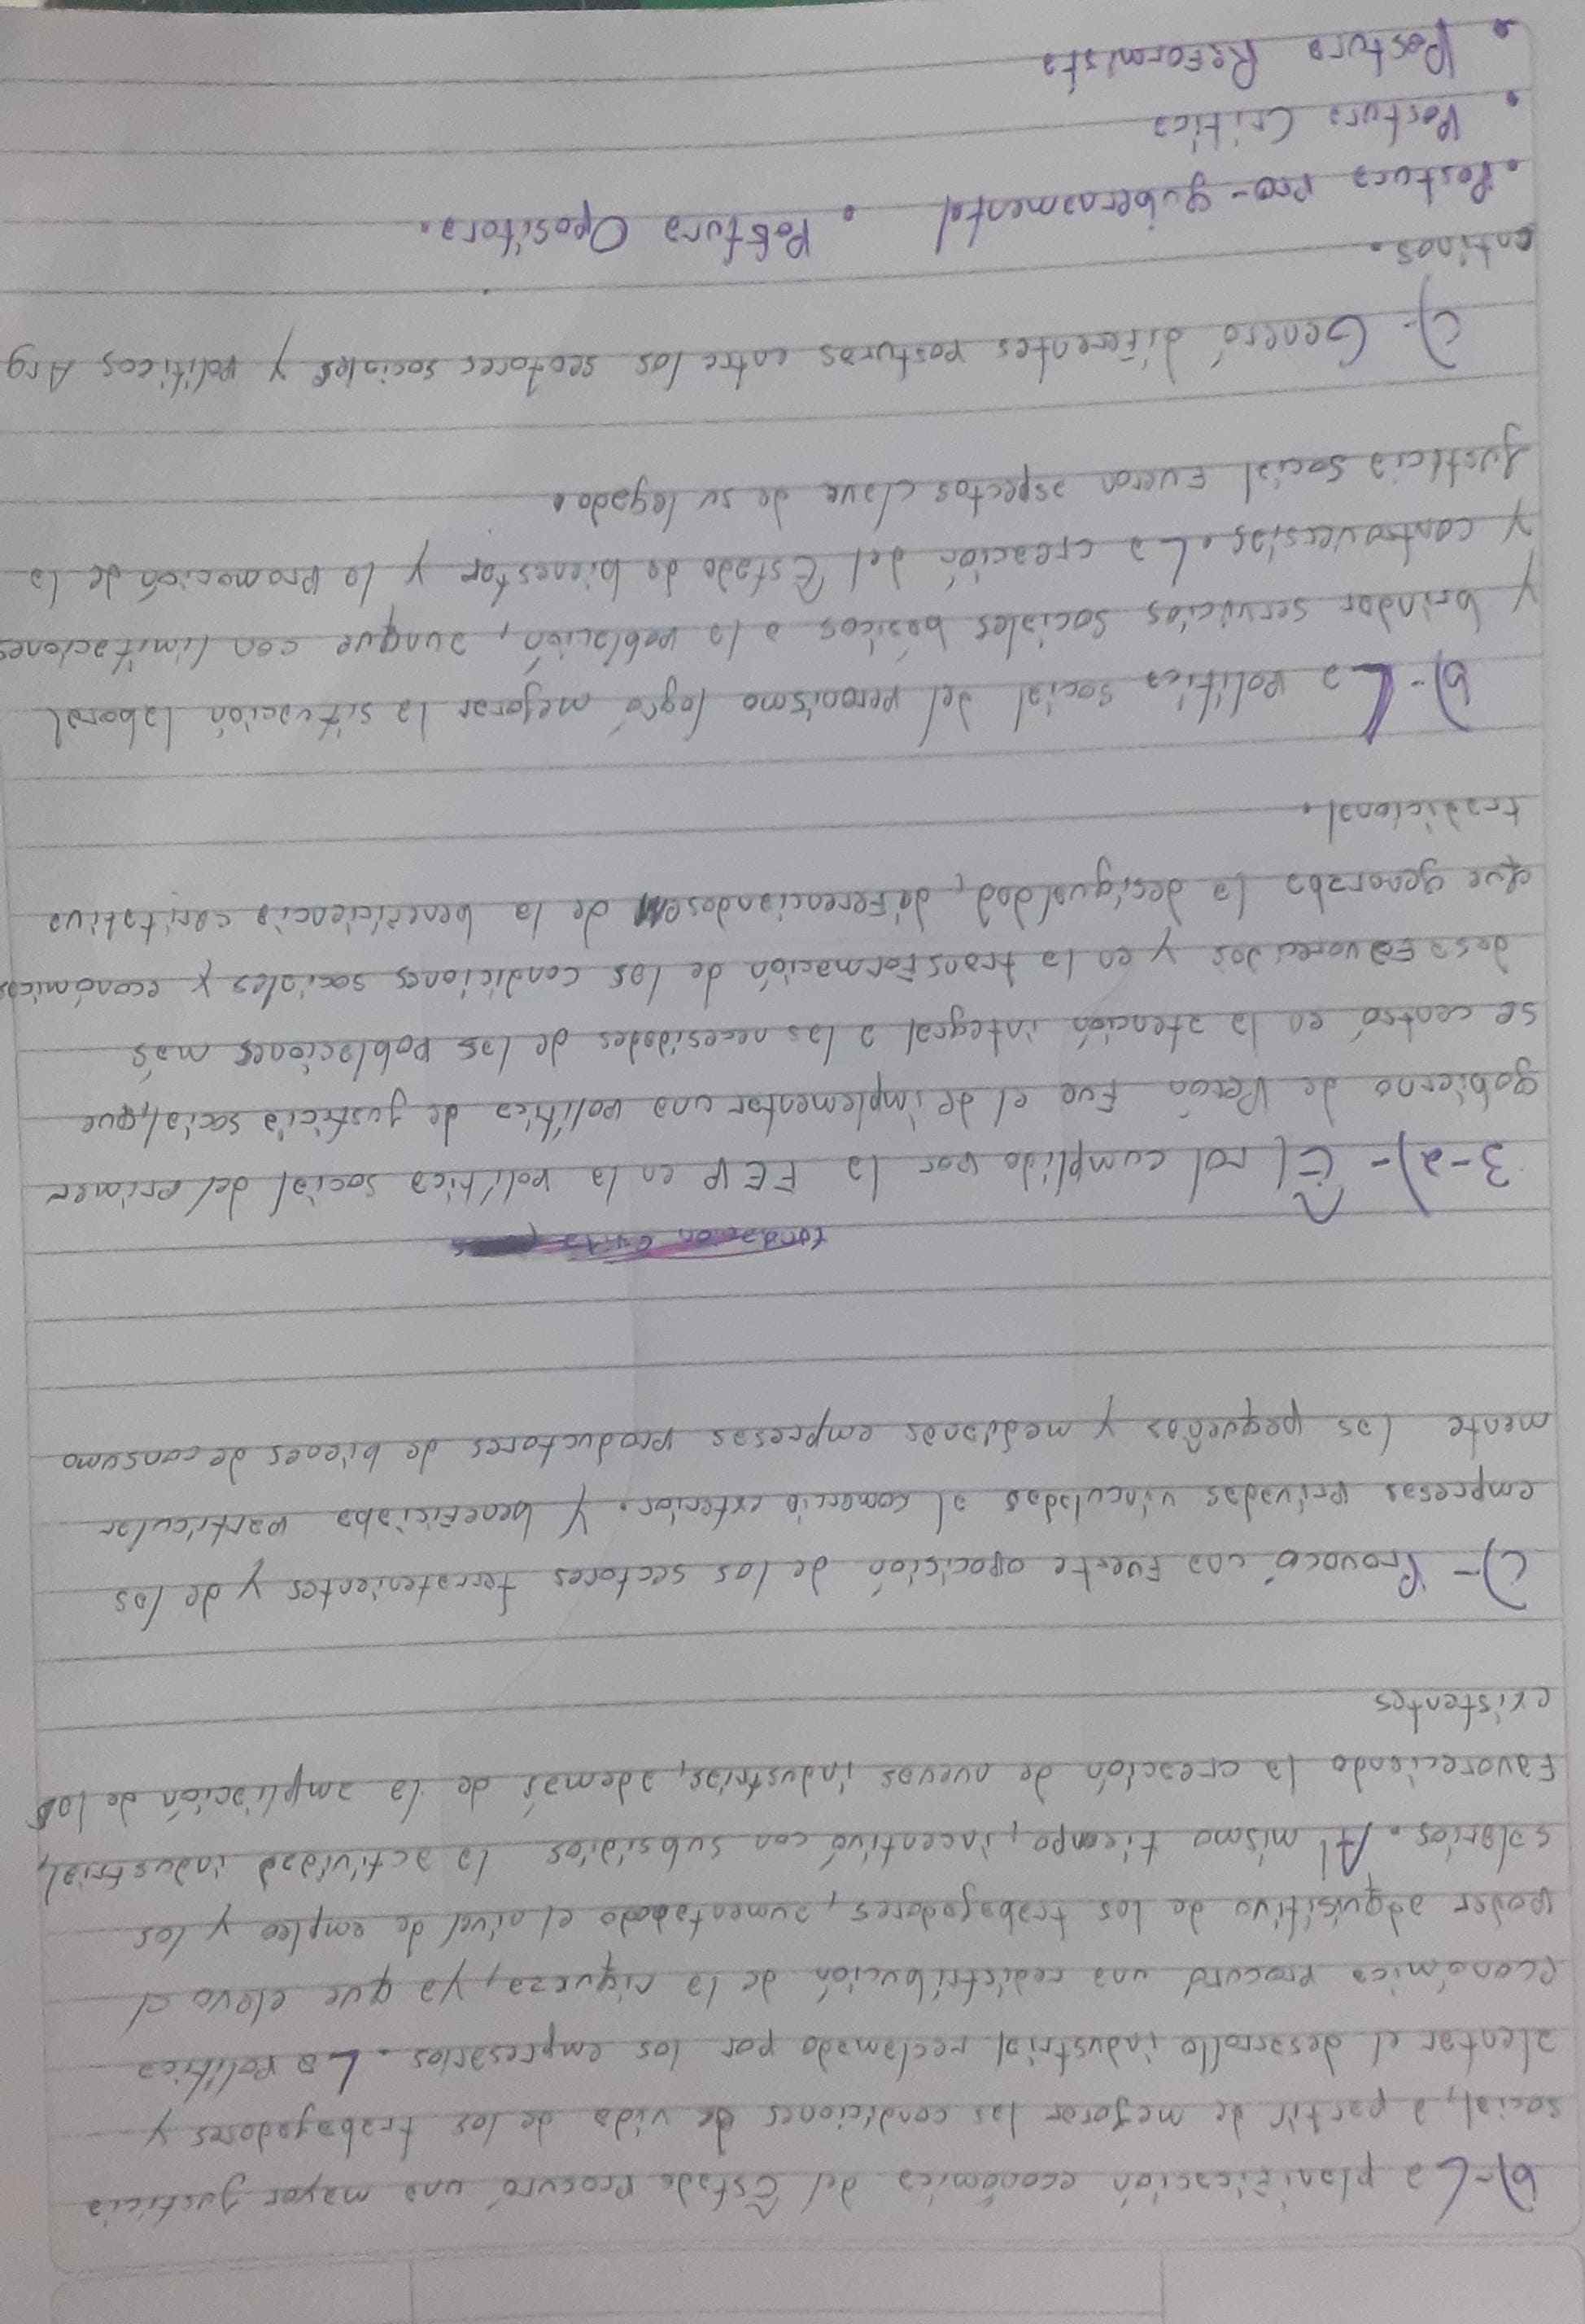 b)- La planificación económica del Estado procuró una mayor justicia
social, a partir de mejorar las condiciones de vida de los trabajadores y
alentar el desarrollo industrial reclamado por los empresarios. La Política
económica procuró una redistribución de la riqueza, ya que elevo el
poder adquisitivo de los trabajadores, aumentado el nivel de empleo y los
salarios. Al mismo tiempo, incentivó con subsidios la actividad industrial,
favoreciendo la creación de nuevas industrias, además de la ampliación de las
existentes
c)- Provocó una fuerte oposición de los sectores terratenientes y de las
empresas privadas vinculadas al comercio exterior. Y beneficiaba particular
mente las pequeñas y medianas empresas productores de bienes de consumo
fundación Evita
3-a)- El rol cumplido por la FEP en la política social del primer
gobierno de Perón fue el de implementar una política de justicia social, que
se centró en la atención integral a las necesidades de las poblaciones más
desfavorecidos y en la transformación de las condiciones sociales y económicas
que generaba la desigualdad, diferenciandose de la beneficiencia caritativa
tradicional.
b)- La política social del peronismo logró mejorar la situación laboral
y brindar servicios sociales básicos a la población, aunque con limitaciones
y controversias. La creación del Estado de bienestar y la promoción de la
justicia social fueron aspectos clave de su legado.
c)- Generó diferentes posturas entre los sectores sociales y políticos Arg
entinos.
• Postura pro-gubernamental • Postura Opositora.
• Postura Crítica
• Postura Reformista